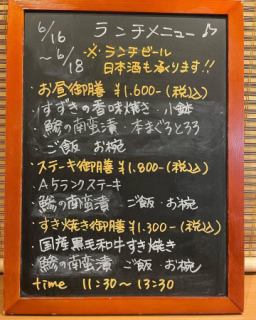 6/16
～6/18
ランチメニュー♪
※ランチビール
日本酒も承ります!!
・お昼御膳 ¥1.600-(税込)
・すずきの香味焼き・小鉢
・鯵の南蛮漬・本まぐろとろろ
・ご飯・お椀
・ステーキ御膳 ¥1.800-(税込)
・A5ランクステーキ
・鯵の南蛮漬・ご飯・お椀
・すき焼き御膳 ¥1.300-(税込)
・国産黒毛和牛すき焼き
・鯵の南蛮漬・ご飯・お椀
time 11:30～13:30